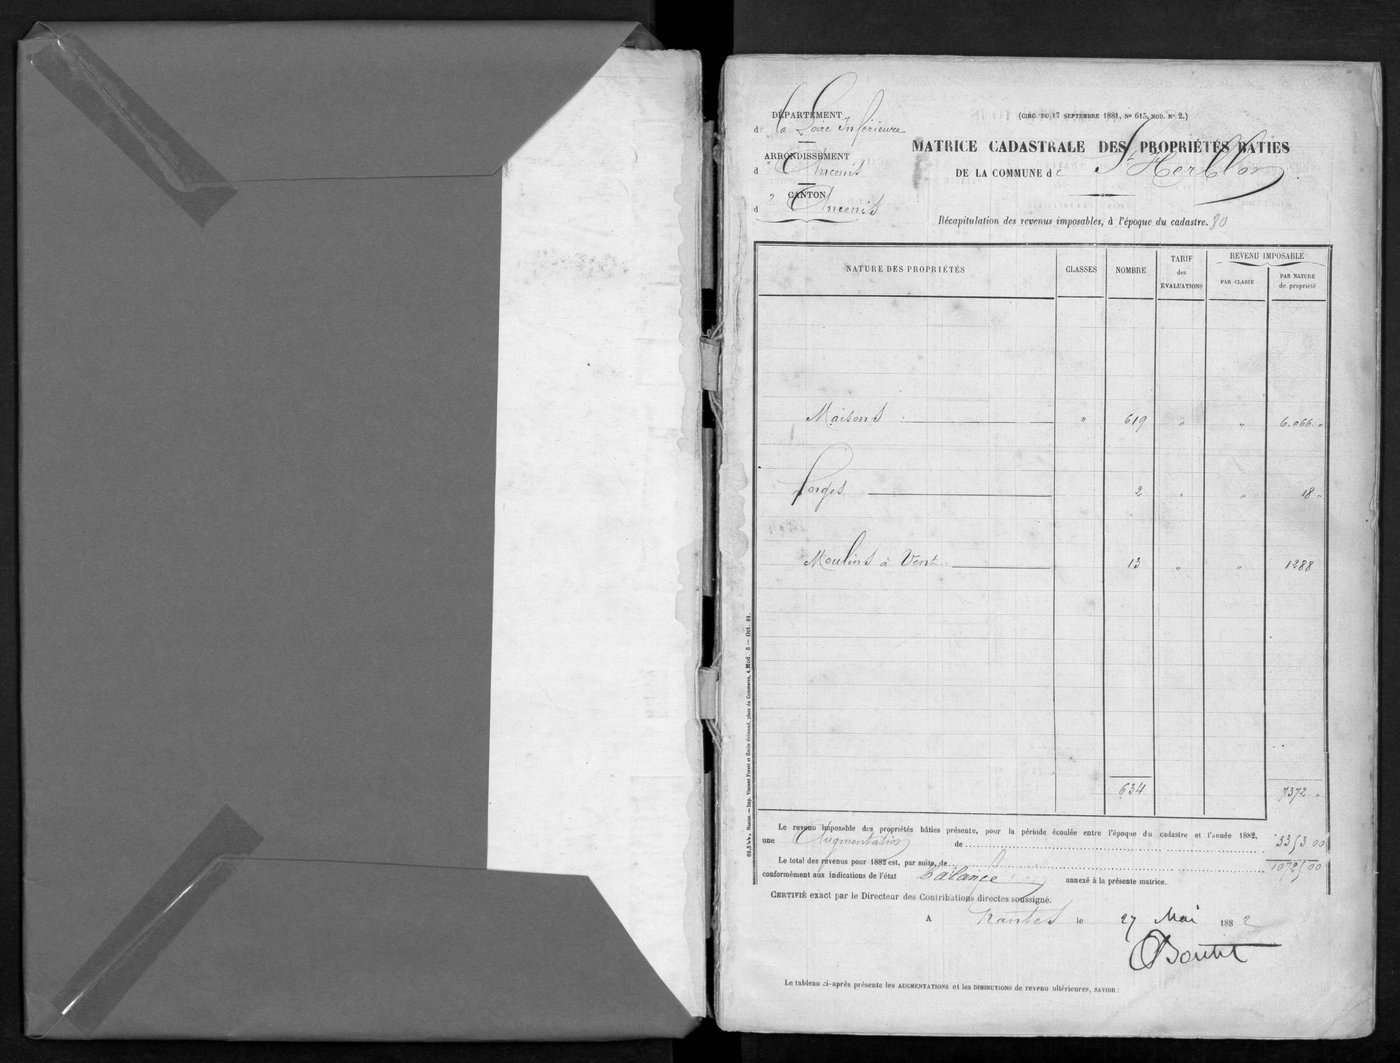 (CIRC. DU 17 SEPTEMBRE 1881, No 615, MOD. No 2.)
DÉPARTEMENT
de la Loire Inférieure
ARRONDISSEMENT
d'Ancenis
CANTON
d'Ancenis
MATRICE CADASTRALE DES PROPRIÉTÉS BATIES
DE LA COMMUNE de St Herblon
Récapitulation des revenus imposables, à l'époque du cadastre.
NATURE DES PROPRIÉTÉS CLASSES NOMBRE TARIF des ÉVALUATIONS REVENU IMPOSABLE PAR CLASSE PAR NATURE de propriété
Maisons " 619 " " 6.066 "
Forges 2 " " 18 "
Moulins à Vent 13 " " 1288
634 7372 "
Le revenu imposable des propriétés bâties présente, pour la période écoulée entre l'époque du cadastre et l'année 1882,
une Augmentation de 3353 00
Le total des revenus pour 1882 est, par suite, de 10725 00
conformément aux indications de l'état balance annexé à la présente matrice.
CERTIFIÉ exact par le Directeur des Contributions directes soussigné.
A Nantes le 27 Mai 1882
Le tableau ci-après présente les AUGMENTATIONS et les DIMINUTIONS de revenu ultérieures, SAVOIR :